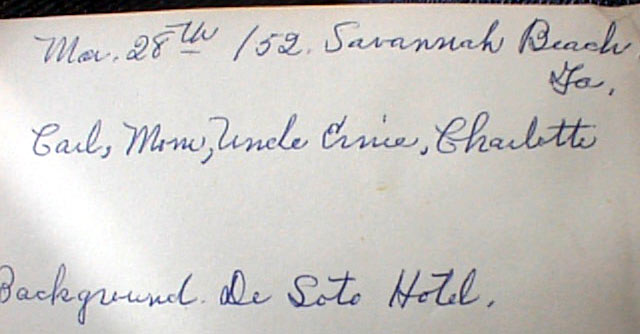 Mar. 28th /52. Savannah Beach
Ga.
Carl, Mom, Uncle Ernie, Charlotte
Background. De Soto Hotel.